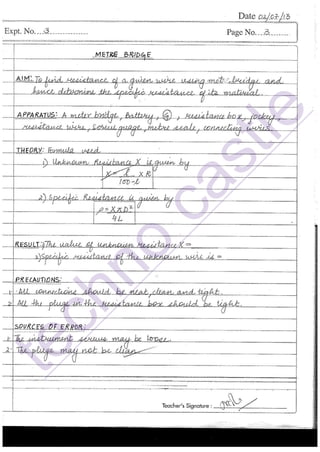 Date 02/07/13
Expt. No. 3
Page No. 3
METRE BRIDGE
AIM: To find resistance of a given wire using metre bridge and
hence determine the specific resistance of its material.
APPARATUS: A meter bridge, Battery, G, resistance box, jockey,
resistance wire, screw guage, metre scale, connecting wires.
THEORY: Formula used
1) Unknown Resistance X is given by
X = l x R
100-l
2) Specific Resistance is given by
ρ = XπD²
4L
RESULT: 1) The value of unknown resistance X =
2) Specific resistance of the unknown wire is =
PRECAUTIONS:
1. All connections should be neat, clean and tight.
2. All the plugs in the resistance box should be tight.
SOURCES OF ERROR:
1. The instrument screws may be loose.
2. The plugs may not be clean.
Teacher's Signature :
techno castle